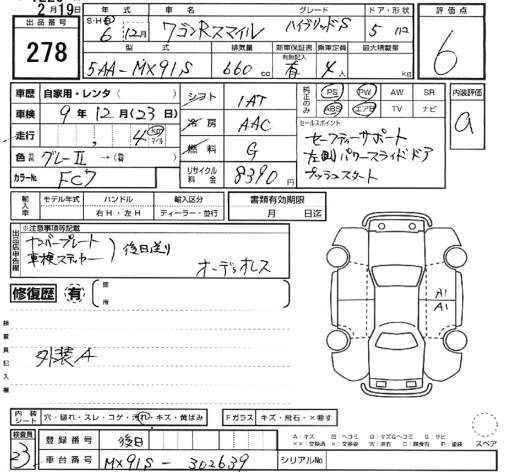 2月19日
出品番号
278
年式 車名 グレード ドア・形状 評価点
S・H・R 6年 12月 ワゴンRスマイル ハイブリッドS 5 ドア 6
型式 排気量 新車保証書 乗車定員 最大積載量
有無記入
5AA-MX91S 660cc 有 4人 kg
車歴 自家用・レンタ( )
車検 9年12月(23日)
走行 4 km マイル
色 グレーⅡ →(替)
カラーNo. FC7
シフト 1AT
冷房 AAC
燃料 G
リサイクル料金 8390円
純正のみ PS PW AW SR
ABS エアB TV ナビ
内装評価
a
セールスポイント
セーフティーサポート
左側パワースライドドア
プッシュスタート
輸入車 モデル年式 ハンドル 輸入区分
右H・左H ディーラー・並行
書類有効期限
月 日迄
出品店申告欄 ※注意事項等記載
ナンバープレート
車検ステッカー )後日送り
オーディオレス
修復歴 有 箇所
検査員記入欄
外装A
A1
A1
内装 シート 穴・破れ・スレ・コゲ・汚れ・キズ・黄ばみ
Fガラス キズ・飛石・×要す
検査員
23
登録番号 後日
車台番号 MX91S-302639
シリアルNo.
スペア